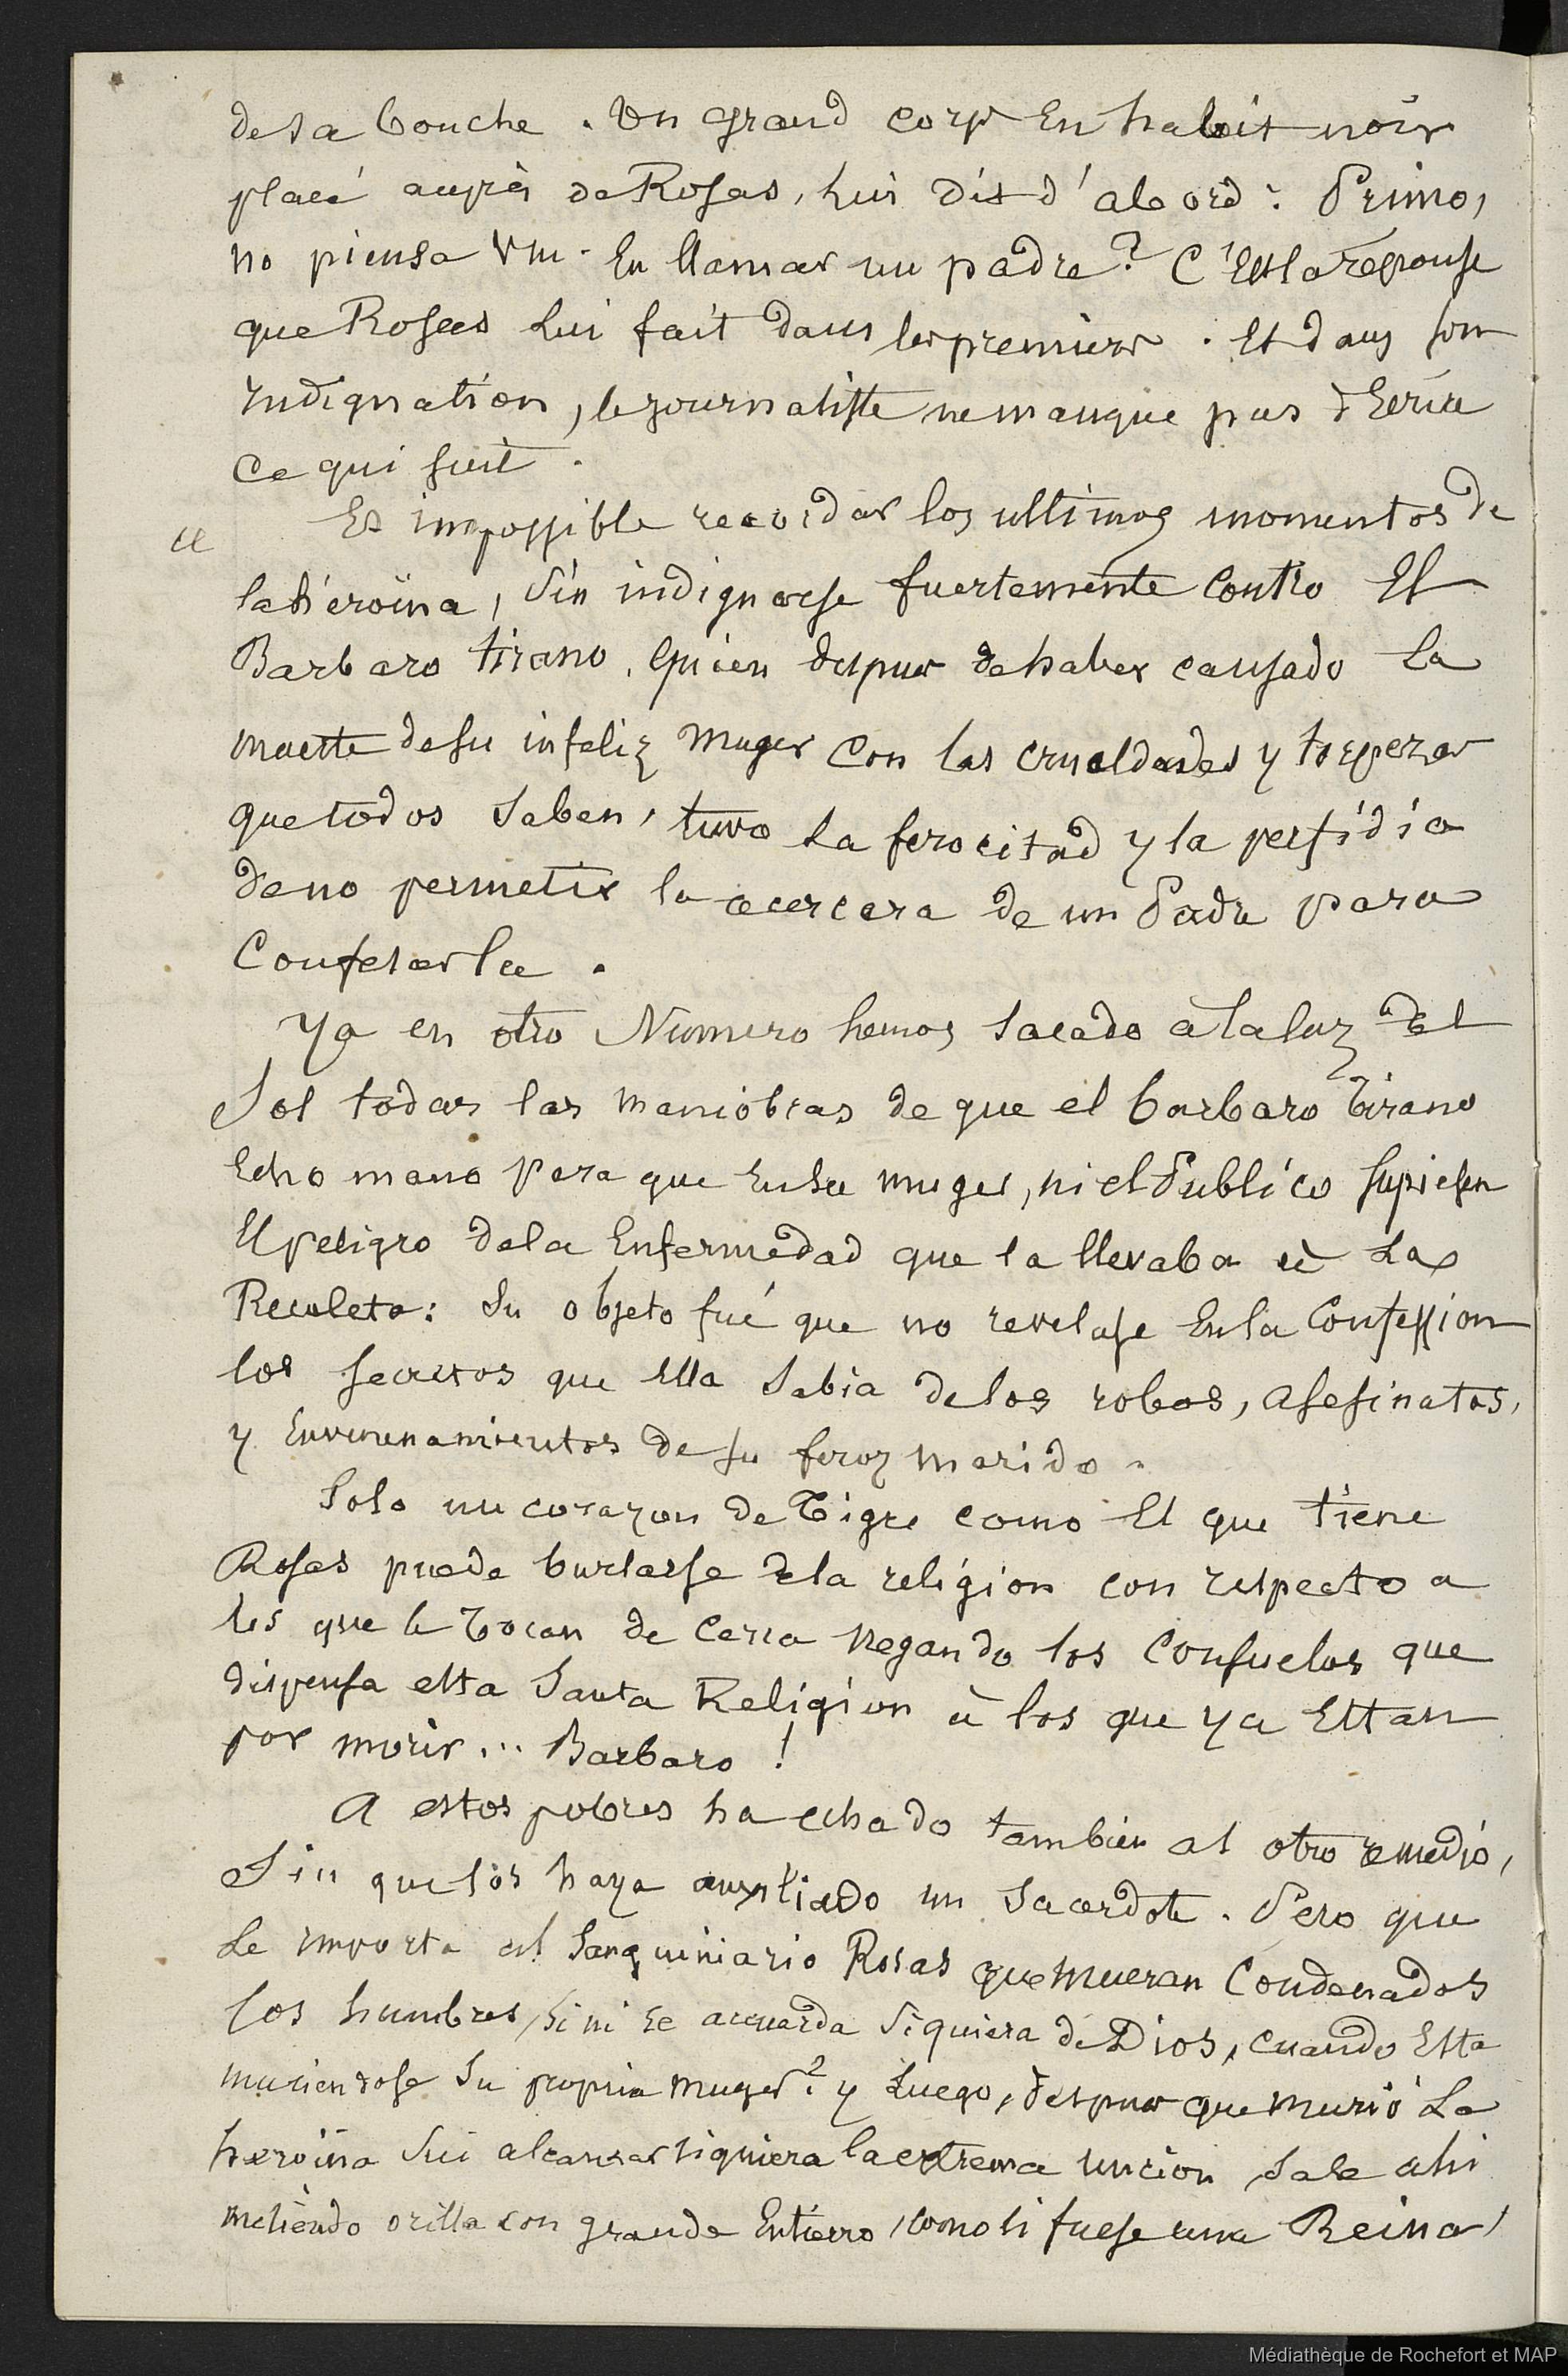 de sa bouche . Un grand corps En habit noir
placé auprès de Rosas, Lui dit d'abord : Primo,
no piensa Vm. En llamar un padre ? C'Est la réponse
que Rosas Lui fait dans les premiers . Et dans son
Indignation, le journaliste ne manque pas d'Ecrire
Ce qui suit .
" Es impossible recordar los ultimos momentos de
la héroïna, Sin indignarse fuertemente Contro El
Barbaro tirano, Quien despues de haber causado La
muerte de su infeliz Muger Con las crueldades y torpezas
que todos Saben, tuvo La ferocitad y la perfidia
de no permetir la acercara de un Padre para
Confesarla .
Ya en otro Numero hemos Sacado a la luz del
Sol todas las maniobras de que el barbaro Tirano
Echo mano Para que En Su muger, ni el Publico Supiesen
El peligro de la Enfermedad que la llevaba à La
Recoleta : Su objeto fué que no revelase En la Confession
los Secretos que Ella Sabia de los robos, Asesinatos,
y Envenenamientos de su feroz marido .
Solo un corazon de Tigre como El que tiene
Rosas puede burlarse de la religion con respecto a
los que le Tocan de Cerca Negando los Consuelos que
dispensa esta Santa Religion à los que ya Estan
por morir... Barbaro !
A estos pobres ha echado tambien al otro remedio,
Sin que los haya auxiliado un Sacerdote . Pero que
Le importa al Sanguiniario Rosas que mueran Condenados
los humbres, Si ni se acuerda Siquiera de Dios, cuando Esta
muriendose Su propria muger ? y Luego, despues que murió La
heroïna Sin alcanzar siquiera la extrema uncion, Sale ahi
metiendo orilla con grande Entierro, como si fuese una Reina,
Médiathèque de Rochefort et MAP